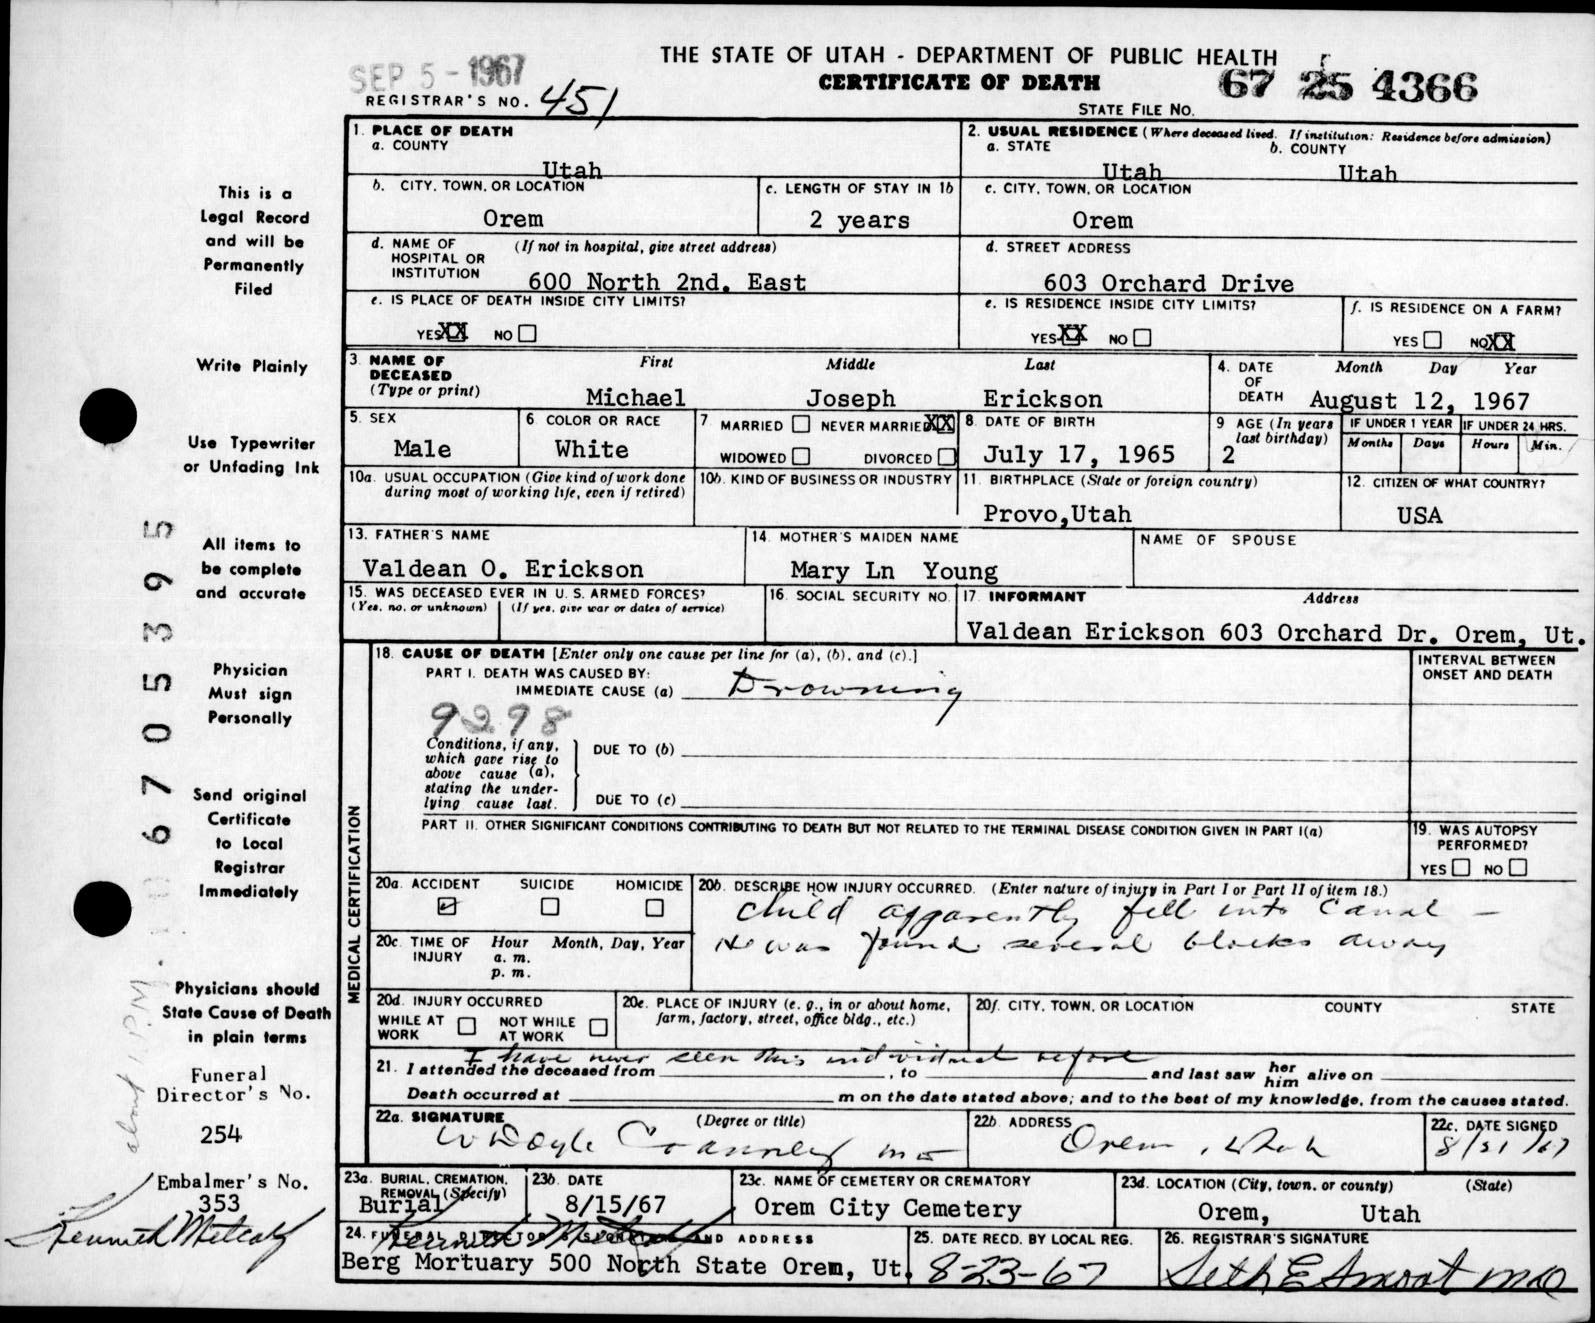 THE STATE OF UTAH - DEPARTMENT OF PUBLIC HEALTH
SEP 5 - 1967
CERTIFICATE OF DEATH
67 25 4366
REGISTRAR'S NO. 451
STATE FILE NO.
1. PLACE OF DEATH
a. COUNTY
Utah
2. USUAL RESIDENCE (Where deceased lived. If institution: Residence before admission)
a. STATE
b. COUNTY
Utah
Utah
b. CITY, TOWN, OR LOCATION
Orem
c. LENGTH OF STAY IN 1b
2 years
c. CITY, TOWN, OR LOCATION
Orem
d. NAME OF HOSPITAL OR INSTITUTION
(If not in hospital, give street address)
600 North 2nd. East
d. STREET ADDRESS
603 Orchard Drive
e. IS PLACE OF DEATH INSIDE CITY LIMITS?
YES XX NO
e. IS RESIDENCE INSIDE CITY LIMITS?
YES XX NO
f. IS RESIDENCE ON A FARM?
YES NO XX
3. NAME OF DECEASED
(Type or print)
First Middle Last
Michael Joseph Erickson
4. DATE OF DEATH
Month Day Year
August 12, 1967
5. SEX
Male
6. COLOR OR RACE
White
7. MARRIED NEVER MARRIED XX
WIDOWED DIVORCED
8. DATE OF BIRTH
July 17, 1965
9 AGE (In years last birthday)
2
IF UNDER 1 YEAR
Months Days
IF UNDER 24 HRS.
Hours Min.
10a. USUAL OCCUPATION (Give kind of work done during most of working life, even if retired)
10b. KIND OF BUSINESS OR INDUSTRY
11. BIRTHPLACE (State or foreign country)
Provo,Utah
12. CITIZEN OF WHAT COUNTRY?
USA
13. FATHER'S NAME
Valdean O. Erickson
14. MOTHER'S MAIDEN NAME
Mary Ln Young
NAME OF SPOUSE
15. WAS DECEASED EVER IN U. S. ARMED FORCES?
(Yes, no, or unknown) (If yes, give war or dates of service)
16. SOCIAL SECURITY NO.
17. INFORMANT Address
Valdean Erickson 603 Orchard Dr. Orem, Ut.
18. CAUSE OF DEATH [Enter only one cause per line for (a), (b), and (c).]
PART I. DEATH WAS CAUSED BY:
IMMEDIATE CAUSE (a) Drowning
9298
Conditions, if any, which gave rise to above cause (a), stating the underlying cause last.
DUE TO (b)
DUE TO (c)
INTERVAL BETWEEN ONSET AND DEATH
PART II. OTHER SIGNIFICANT CONDITIONS CONTRIBUTING TO DEATH BUT NOT RELATED TO THE TERMINAL DISEASE CONDITION GIVEN IN PART I(a)
19. WAS AUTOPSY PERFORMED?
YES NO
MEDICAL CERTIFICATION
20a. ACCIDENT SUICIDE HOMICIDE
20b. DESCRIBE HOW INJURY OCCURRED. (Enter nature of injury in Part I or Part II of item 18.)
Child apparently fell into Canal -
He was found several blocks away
20c. TIME OF INJURY
Hour Month, Day, Year
a. m.
p. m.
20d. INJURY OCCURRED
WHILE AT WORK NOT WHILE AT WORK
20e. PLACE OF INJURY (e. g., in or about home, farm, factory, street, office bldg., etc.)
20f. CITY, TOWN, OR LOCATION COUNTY STATE
I have never seen this individual before
21. I attended the deceased from , to and last saw her him alive on
Death occurred at m on the date stated above; and to the best of my knowledge, from the causes stated.
22a. SIGNATURE (Degree or title)
W Doyle Cranney MD
22b. ADDRESS
Orem, Utah
22c. DATE SIGNED
8/21/67
23a. BURIAL, CREMATION, REMOVAL (Specify)
Burial
23b. DATE
8/15/67
23c. NAME OF CEMETERY OR CREMATORY
Orem City Cemetery
23d. LOCATION (City, town, or county) (State)
Orem, Utah
24. FUNERAL DIRECTOR'S SIGNATURE AND ADDRESS
Kenneth Metcalf
Berg Mortuary 500 North State Orem, Ut.
25. DATE RECD. BY LOCAL REG.
8-23-67
26. REGISTRAR'S SIGNATURE
Seth E Smoot MD
This is a
Legal Record
and will be
Permanently
Filed
Write Plainly
Use Typewriter
or Unfading Ink
All items to
be complete
and accurate
Physician
Must sign
Personally
Send original
Certificate
to Local
Registrar
Immediately
Physicians should
State Cause of Death
in plain terms
Funeral
Director's No.
254
Embalmer's No.
353
Kenneth Metcalf
about 1 P.M.
06705395